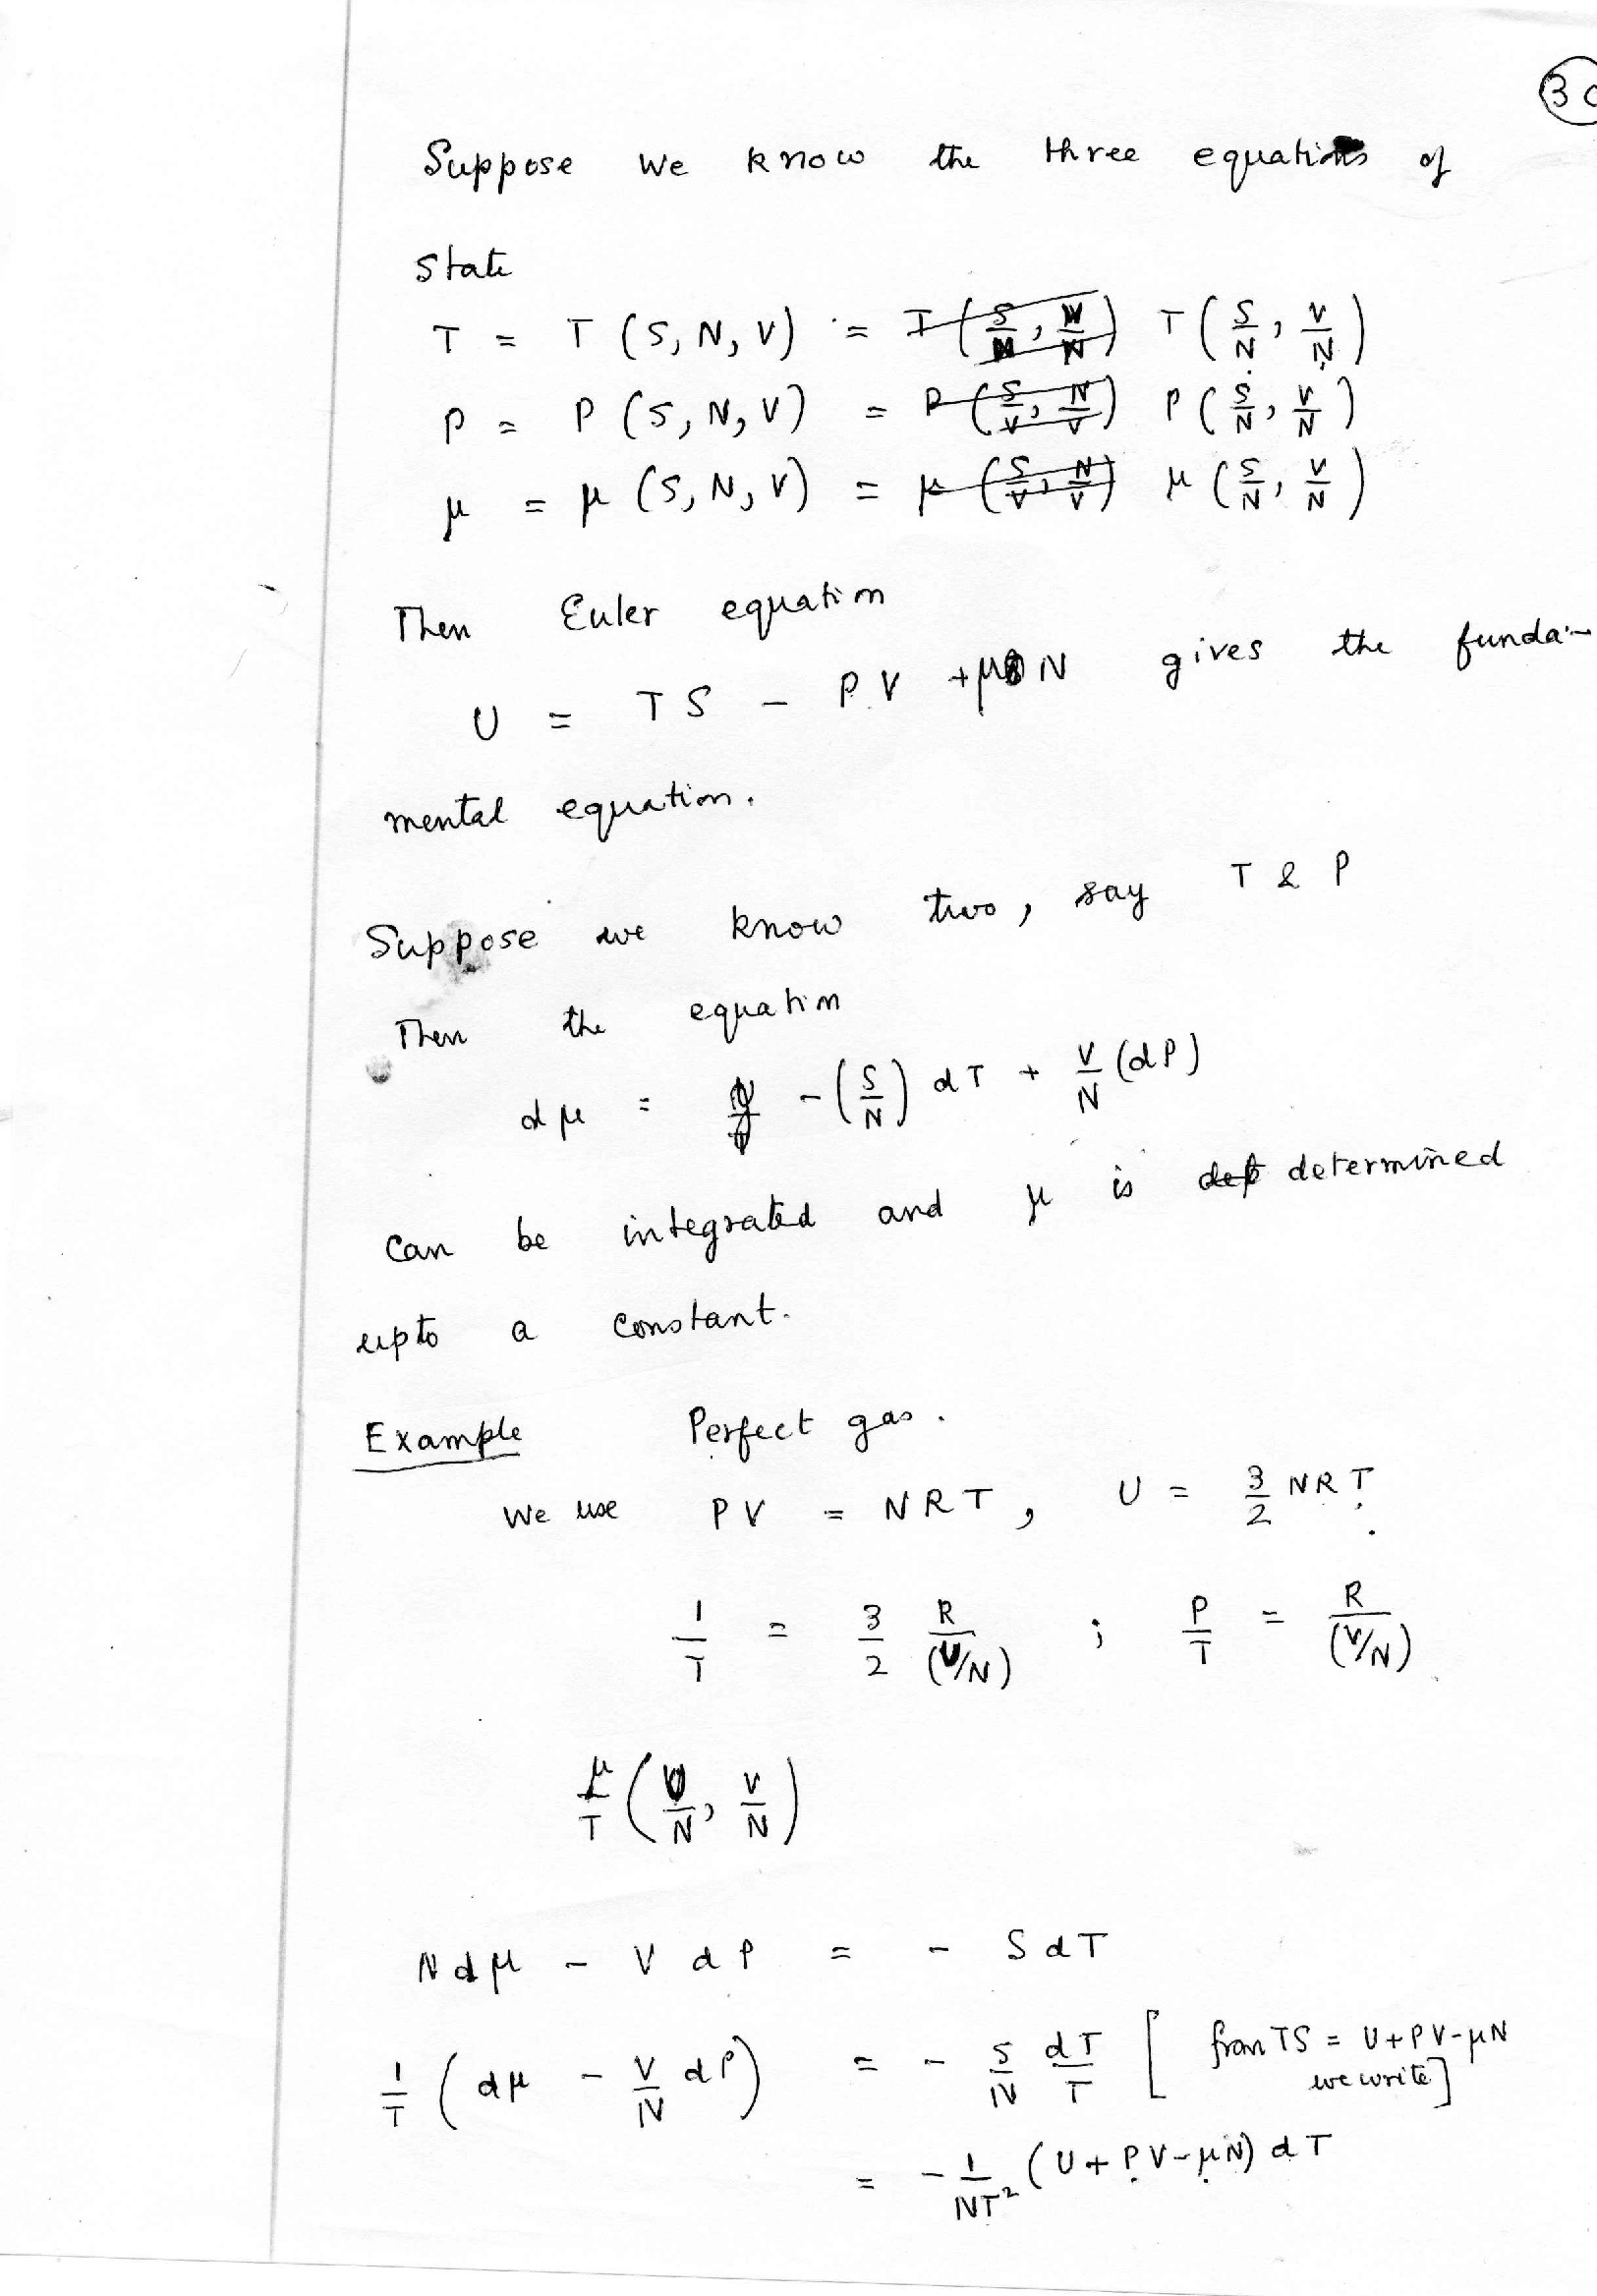 30
Suppose we know the three equations of
state
T = T (S, N, V) = T (S/N, V/N)
P = P (S, N, V) = P (S/V, N/V) P (S/N, V/N)
μ = μ (S, N, V) = μ (S/V, N/V) μ (S/N, V/N)
Then Euler equation
U = TS - P.V + μN gives the funda-
mental equation.
Suppose we know two, say T & P
Then the equation
dμ = -(S/N) dT + V/N (dP)
can be integrated and μ is det determined
upto a constant.
Example Perfect gas.
We use PV = NRT, U = 3/2 NRT.
1/T = 3/2 R/(U/N) ; P/T = R/(V/N)
μ/T (U/N, V/N)
Ndμ - V dP = - SdT
1/T (dμ - V/N dP) = - S/N dT/T [ from TS = U+PV-μN
we write]
= - 1/NT² (U+PV-μN) dT